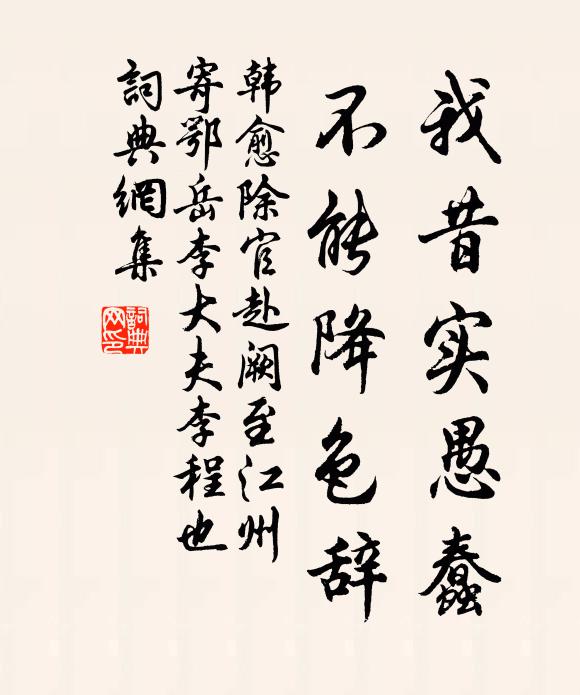 我昔实愚蠢
不能降色辞
韩愈除官赴阙至江州
寄鄂岳李大夫李程也
詞典網集
詞典网印